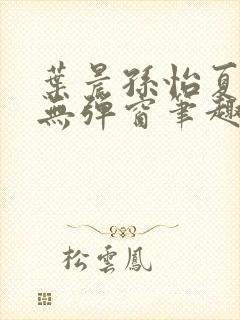 葉晨孫怡夏
無彈窗筆趣
松雲鳳